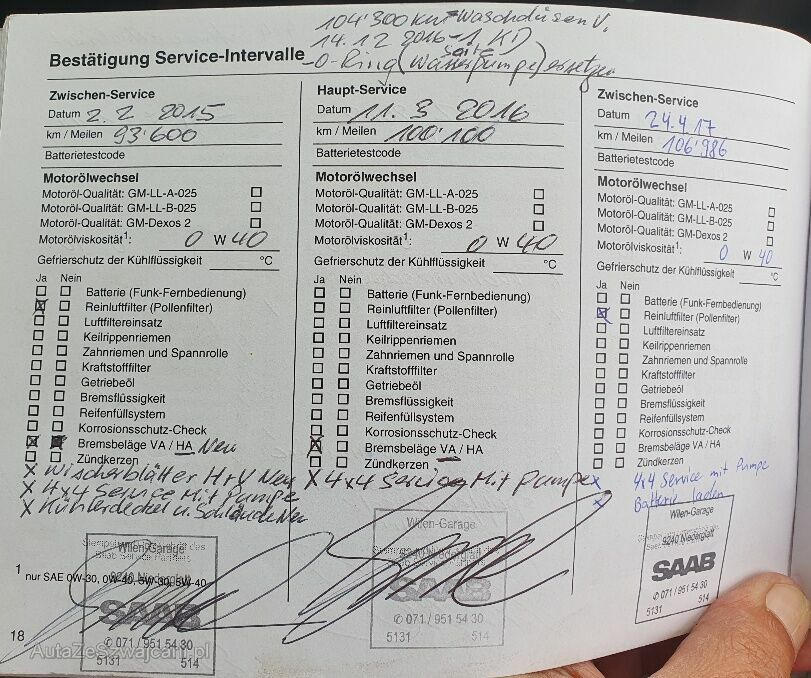 104'300 km = Waschdüsen V.
14.12 2016 - 1 KD
Bestätigung Service-Intervalle
- O-Ring (Wasserpumpe) ersetzen
Seite
Zwischen-Service
Datum 2.2 2015
km / Meilen 93'600
Batterietestcode
Motorölwechsel
Motoröl-Qualität: GM-LL-A-025
Motoröl-Qualität: GM-LL-B-025
Motoröl-Qualität: GM-Dexos 2
Motorölviskosität¹: 0 W 40
Gefrierschutz der Kühlflüssigkeit °C
Ja Nein
Batterie (Funk-Fernbedienung)
Reinluftfilter (Pollenfilter)
Luftfiltereinsatz
Keilrippenriemen
Zahnriemen und Spannrolle
Kraftstofffilter
Getriebeöl
Bremsflüssigkeit
Reifenfüllsystem
Korrosionsschutz-Check
Bremsbeläge VA / HA Neu
Zündkerzen
X Wischerblätter H+V Neu
X 4x4 Service Mit Pumpe
X Kühlerdeckel u. Schläuche Neu
Wilen-Garage
SAAB
✆ 071 / 951 54 30
5131 514
1 nur SAE 0W-30, 0W-40, 5W-30, 5W-40
18
Haupt-Service
Datum 11. 3 2016
km / Meilen 100'100
Batterietestcode
Motorölwechsel
Motoröl-Qualität: GM-LL-A-025
Motoröl-Qualität: GM-LL-B-025
Motoröl-Qualität: GM-Dexos 2
Motorölviskosität¹: 0 W 40
Gefrierschutz der Kühlflüssigkeit °C
Ja Nein
Batterie (Funk-Fernbedienung)
Reinluftfilter (Pollenfilter)
Luftfiltereinsatz
Keilrippenriemen
Zahnriemen und Spannrolle
Kraftstofffilter
Getriebeöl
Bremsflüssigkeit
Reifenfüllsystem
Korrosionsschutz-Check
Bremsbeläge VA / HA
Zündkerzen
X 4x4 Service Mit Pumpe
Wilen-Garage
SAAB
✆ 071 / 951 54 30
5131 514
Zwischen-Service
Datum 24.4.17
km / Meilen 106'986
Batterietestcode
Motorölwechsel
Motoröl-Qualität: GM-LL-A-025
Motoröl-Qualität: GM-LL-B-025
Motoröl-Qualität: GM-Dexos 2
Motorölviskosität¹: 0 W 40
Gefrierschutz der Kühlflüssigkeit °C
Ja Nein
Batterie (Funk-Fernbedienung)
Reinluftfilter (Pollenfilter)
Luftfiltereinsatz
Keilrippenriemen
Zahnriemen und Spannrolle
Kraftstofffilter
Getriebeöl
Bremsflüssigkeit
Reifenfüllsystem
Korrosionsschutz-Check
Bremsbeläge VA / HA
Zündkerzen
x 4x4 Service mit Pumpe
x Batterie laden
Wilen-Garage
SAAB
✆ 071 / 951 54 30
5131 514
AutaZeSzwajcarii.pl